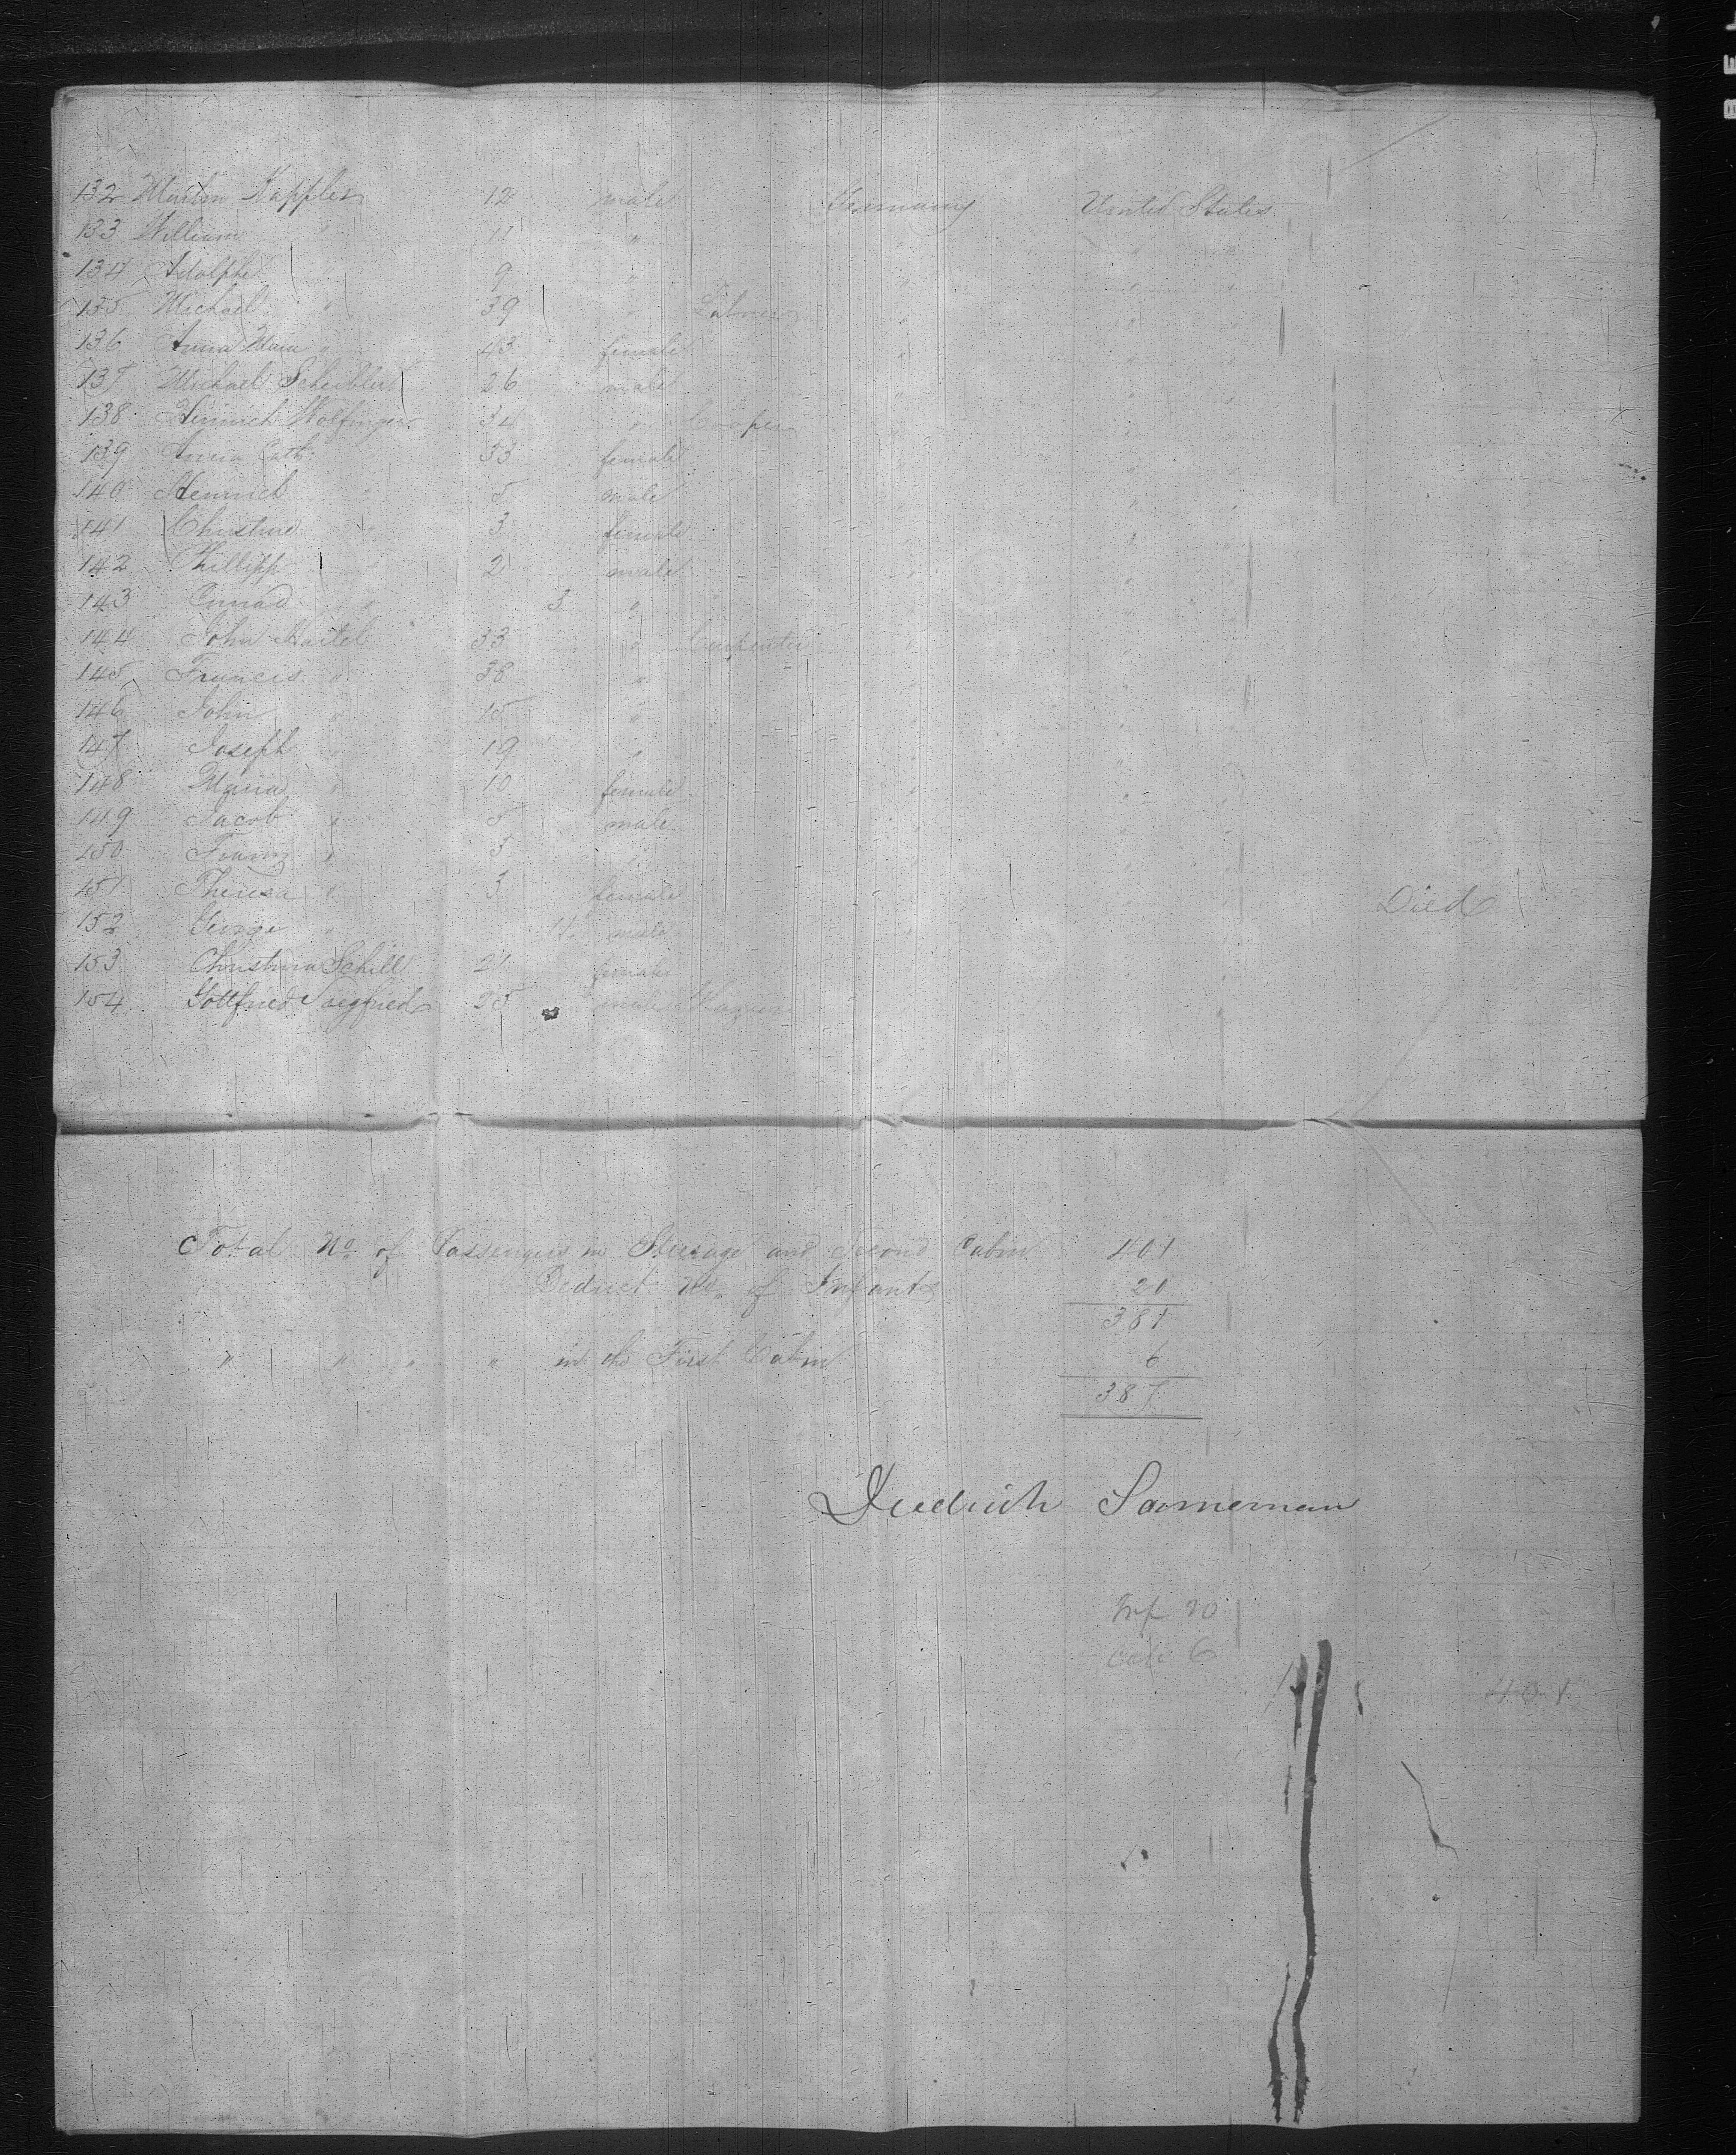 132 Martin Kappler 12 male Germany United States
133 William " 11 " " "
134 Adolph " 9 " " " "
135 Michael " 39 " Laborer " " "
136 Anna Maria " 43 female " " "
137 Michael Scheibler 26 male " " "
138 Heinrich Wolfinger 34 " Cooper " " "
139 Anna Cath. 33 female " "
140 Heinrich " 5 male " " "
141 Christine " 3 female " "
142 Phillipp " 2 male " " "
143 Conrad " 3 " " "
144 John Martel 33 " Carpenter " " "
145 Francis " 38 " " " "
146 John " 15 " " " "
147 Joseph " 19 " " " "
148 Maria " 10 female " " "
149 Jacob " 5 male " " "
150 Franz " 5 " "
151 Theresa " 3 female Died
152 George " 11 male "
153 Christina Schill 21 female
154 Gottfried Siegfried 25 male
Total No. of Passengers in Steerage and Second Cabin 401
Deduct No. of Infants 20
381
" " " " in the First Cabin 6
387
Diedrich
Inf 20
Cab 6
401